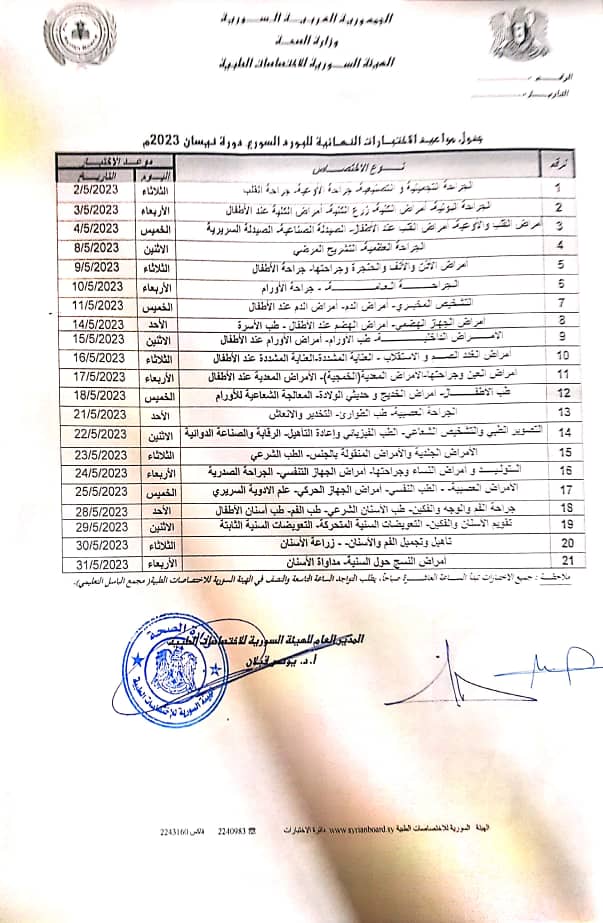 الجمهورية العربية السورية
وزارة الصحة
الهيئة السورية للاختصاصات الطبية
الرقم
التاريخ
جدول مواعيد الاختبارات النهائية للبورد السوري دورة نيسان 2023م
رقم نوع الاختصاص موعد الاختبار
اليوم التاريخ
1 الجراحة التجميلية و التصنيعية- جراحة الأوعية- جراحة القلب الثلاثاء 2/5/2023
2 الجراحة البولية- أمراض الكلية- زرع الكلية- أمراض الكلية عند الأطفال الأربعاء 3/5/2023
3 أمراض القلب والأوعية- أمراض القلب عند الأطفال- الصيدلة الصناعية- الصيدلة السريرية الخميس 4/5/2023
4 الجراحة العظمية- التشريح المرضي الاثنين 8/5/2023
5 أمراض الأذن والأنف والحنجرة وجراحتها- جراحة الأطفال الثلاثاء 9/5/2023
6 الجراحة العامة - جراحة الأورام الأربعاء 10/5/2023
7 التشخيص المخبري- أمراض الدم- أمراض الدم عند الأطفال الخميس 11/5/2023
8 أمراض الجهاز الهضمي- أمراض الهضم عند الأطفال - طب الأسرة الأحد 14/5/2023
9 الأمراض الداخلية- طب الأورام- أمراض الأورام عند الأطفال الاثنين 15/5/2023
10 أمراض الغدد الصم و الاستقلاب - العناية المشددة-العناية المشددة عند الأطفال الثلاثاء 16/5/2023
11 أمراض العين وجراحتها-الأمراض المعدية(الخمجية)- الأمراض المعدية عند الأطفال الأربعاء 17/5/2023
12 طب الأطفال- أمراض الخديج و حديثي الولادة- المعالجة الشعاعية للأورام الخميس 18/5/2023
13 الجراحة العصبية- طب الطوارئ- التخدير والانعاش الأحد 21/5/2023
14 التصوير الطبي والتشخيص الشعاعي- الطب الفيزيائي وإعادة التأهيل- الرقابة والصناعة الدوائية الاثنين 22/5/2023
15 الأمراض الجلدية والأمراض المنقولة بالجنس- الطب الشرعي الثلاثاء 23/5/2023
16 التوليد و أمراض النساء وجراحتها- أمراض الجهاز التنفسي- الجراحة الصدرية الأربعاء 24/5/2023
17 الأمراض العصبية- - الطب النفسي- أمراض الجهاز الحركي- علم الأدوية السريري الخميس 25/5/2023
18 جراحة الفم والوجه والفكين- طب الأسنان الشرعي- طب الفم- طب أسنان الأطفال الأحد 28/5/2023
19 تقويم الأسنان والفكين- التعويضات السنية المتحركة- التعويضات السنية الثابتة الاثنين 29/5/2023
20 تأهيل وتجميل الفم والأسنان- - زراعة الأسنان الثلاثاء 30/5/2023
21 أمراض النسج حول السنية- مداواة الأسنان الأربعاء 31/5/2023
ملاحظة : جميع الاختبارات تبدأ الساعة العاشرة صباحاً، يطلب التواجد الساعة التاسعة والنصف في الهيئة السورية للاختصاصات الطبية( مجمع الباسل التعليمي).
المدير العام للهيئة السورية للاختصاصات الطبية
أ.د. يونس قبلان
وزارة الصحة
الهيئة السورية للاختصاصات الطبية
الهيئة السورية للاختصاصات الطبية www.syrianboard.sy دائرة الاختبارات ☎ 2240983 فاكس 2243160